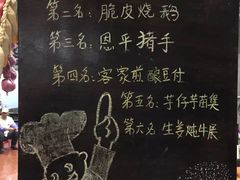 第二名：脆皮烧鹅
第三名：恩平猪手
第四名：客家煎酿豆付
第五名：芋仔芋苗煲
第六名：生姜炖牛展